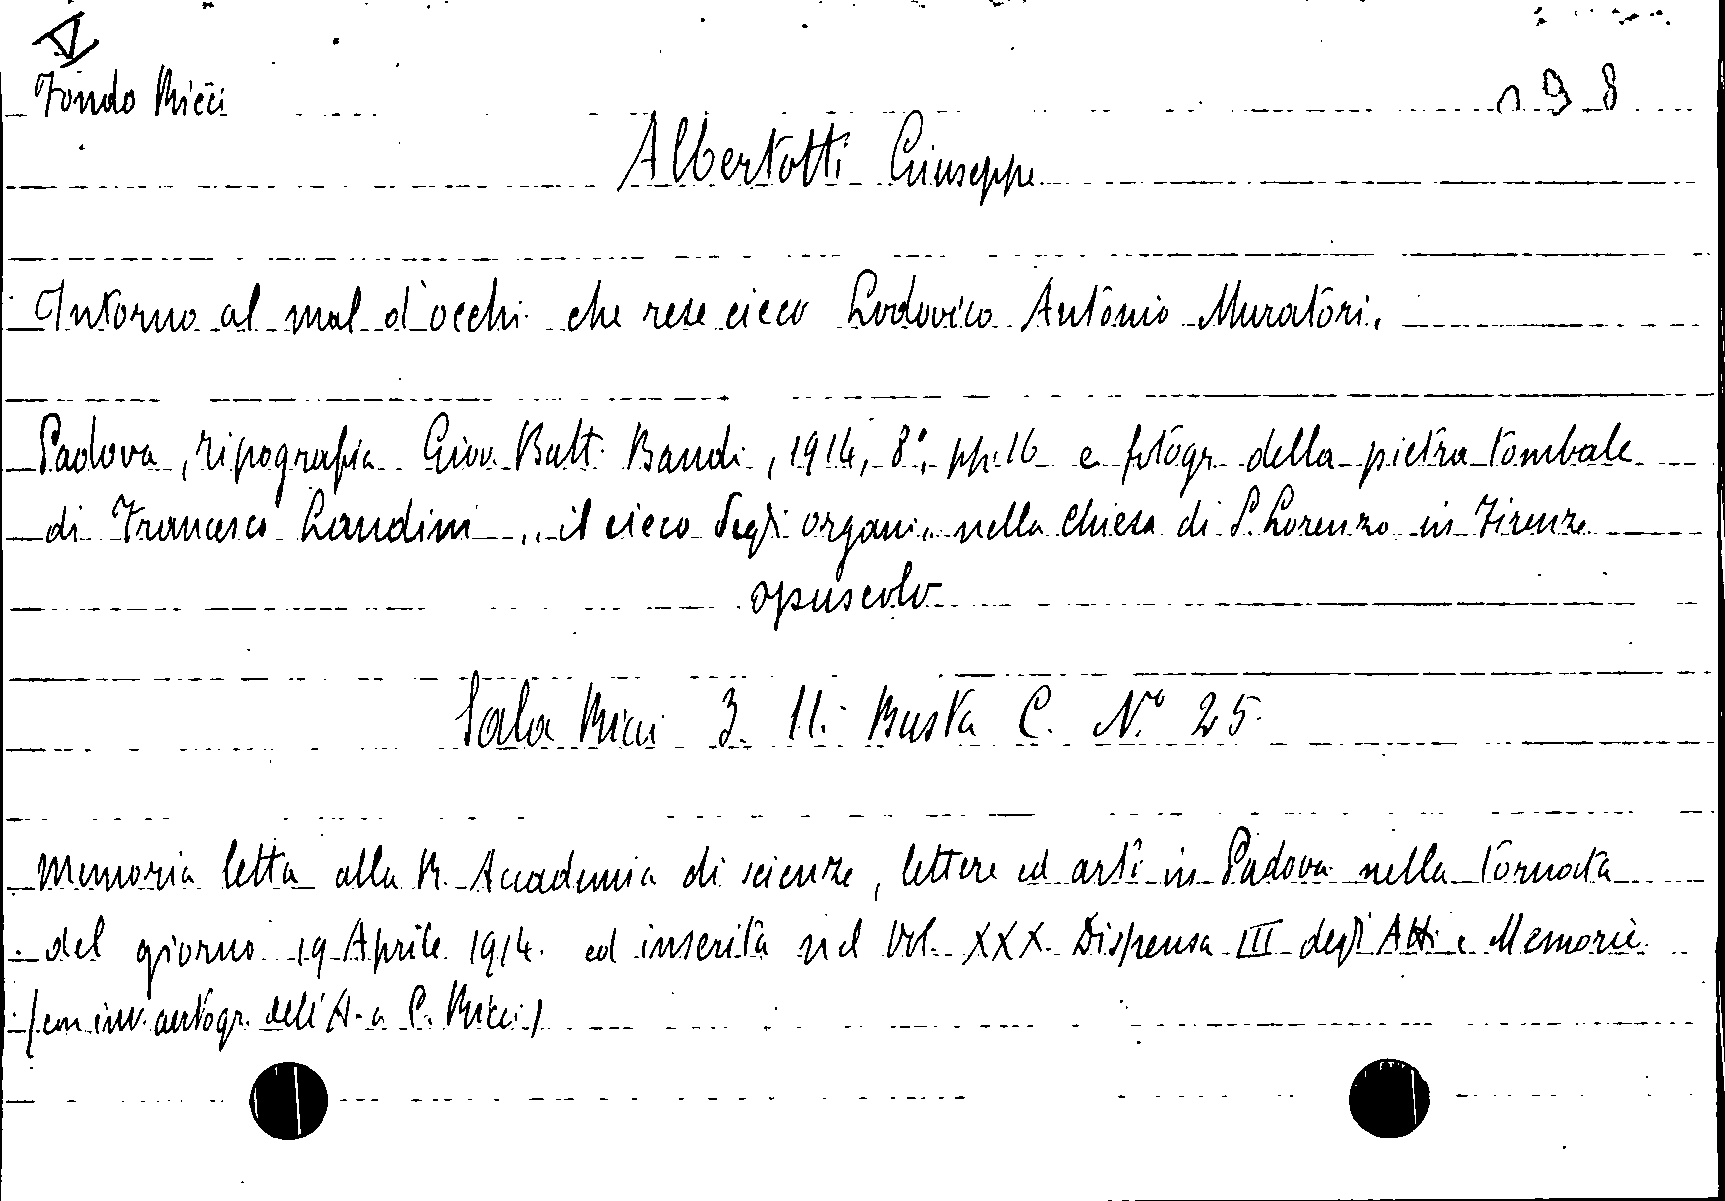 V
Fondo Ricci
198
Albertotti Giuseppe
Intorno al mal d'occhi che rese cieco Lodovico Antonio Muratori.
Padova, tipografia Giov. Batt. Randi, 1914, 8°, pp. 16 e fotogr. della pietra tombale
di Francesco Landini „il cieco degli organi„ nella chiesa di S. Lorenzo in Firenze
opuscolo
Sala Ricci 3. 11. Busta C. N.° 25.
Memoria letta alla R. Accademia di scienze, lettere ed arti in Padova nella tornata
del giorno 19 Aprile 1914. ed inserita nel Vol. XXX. Dispensa III degli Atti e Memorie.
(con inv. autogr. dell'A. a C. Ricci)